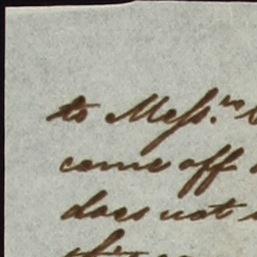 to Messrs.
came off
does not